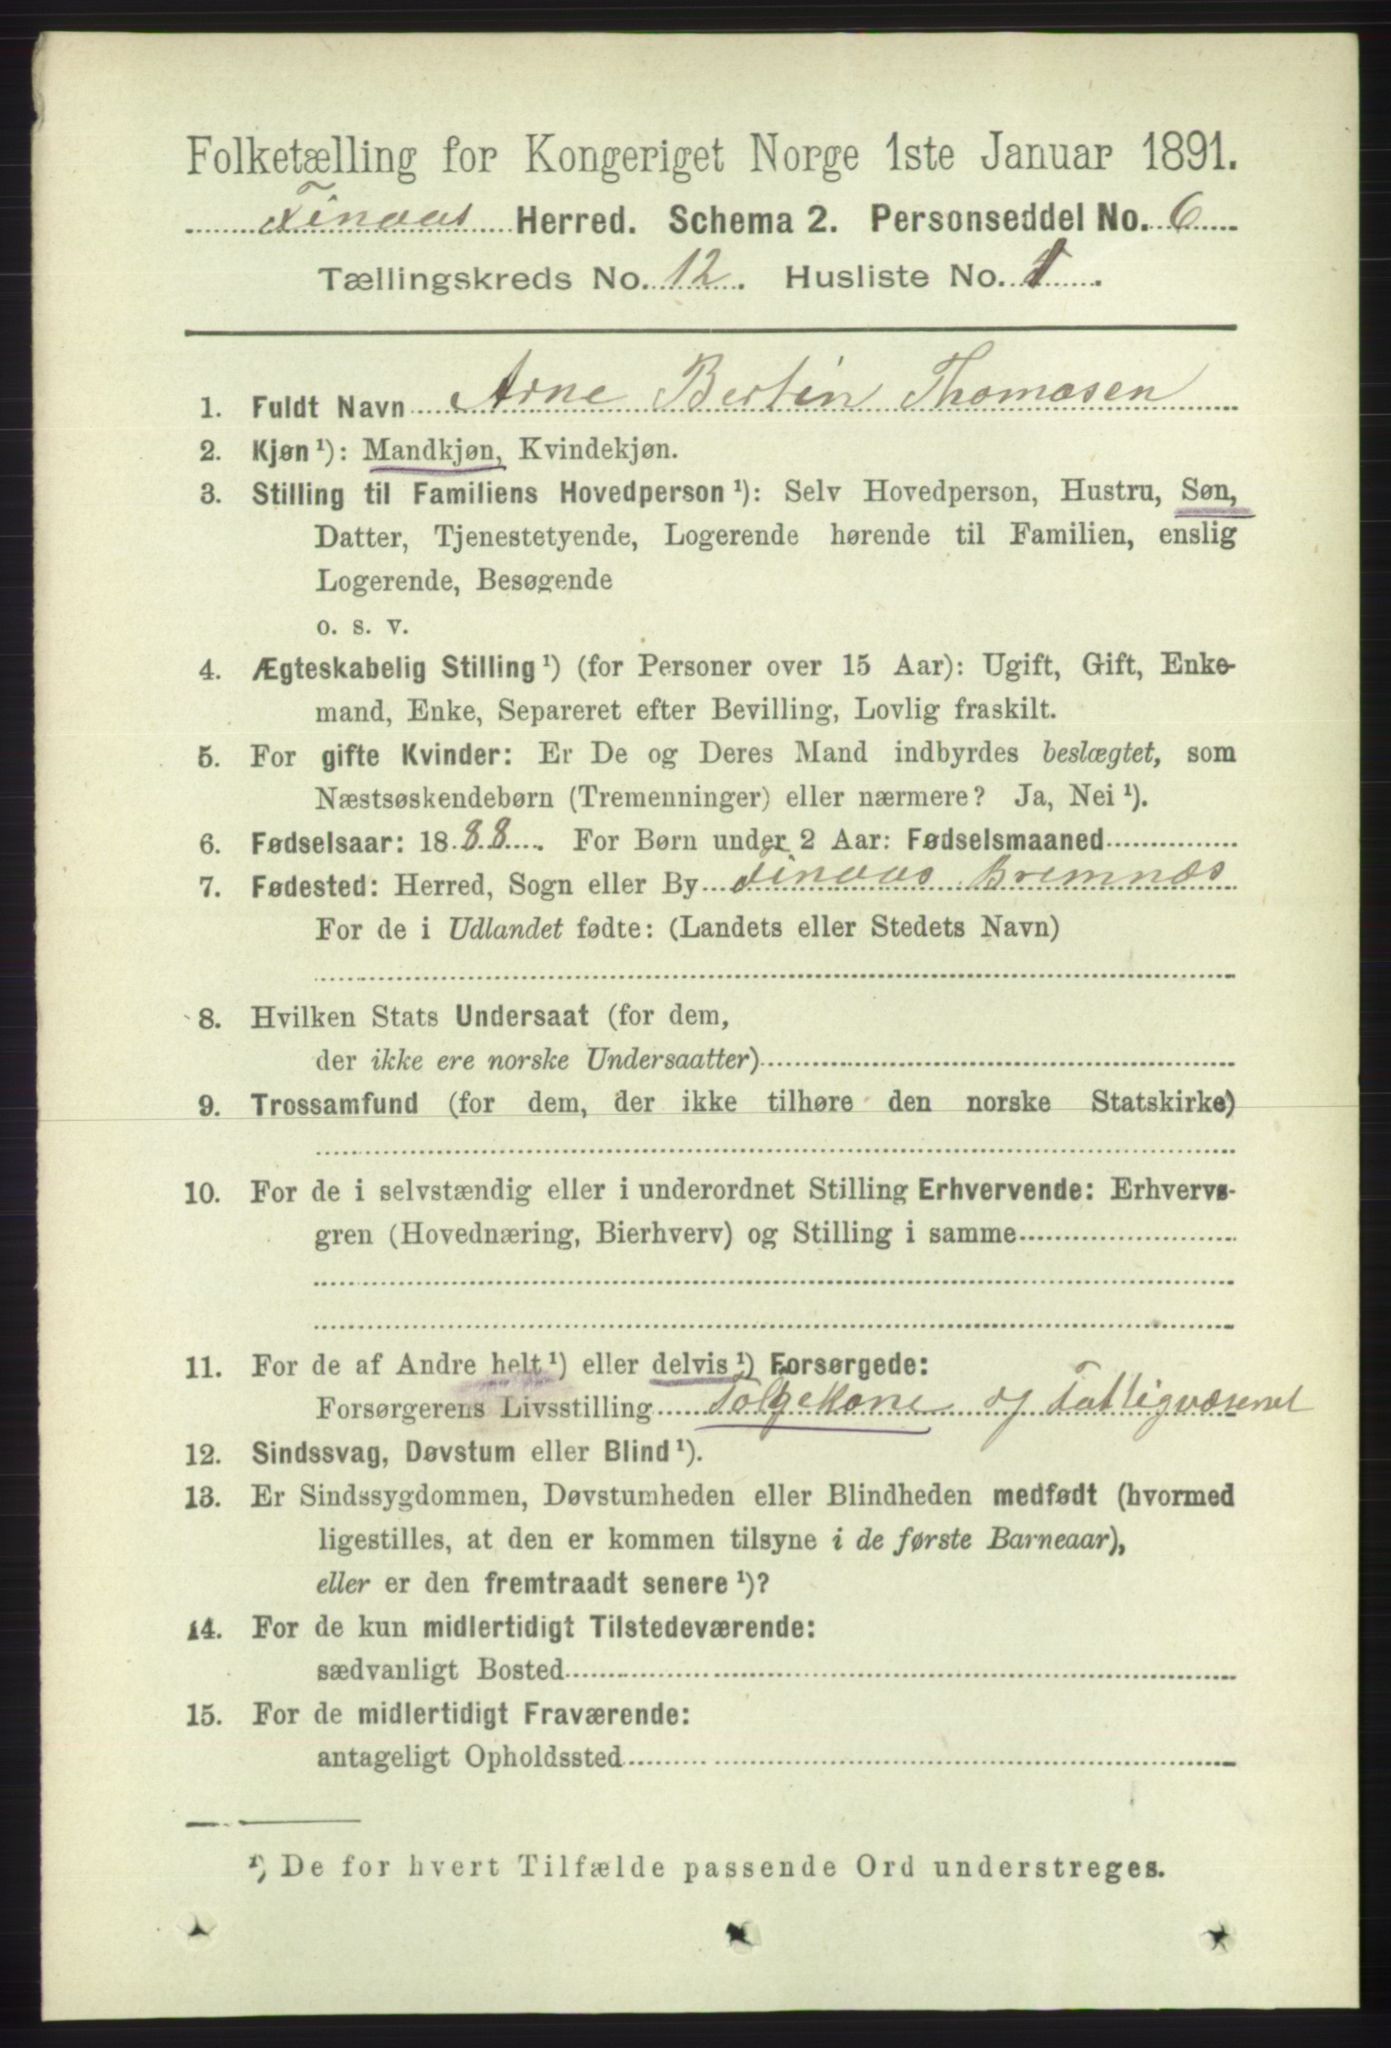 Folketælling for Kongeriget Norge 1ste Januar 1891.
Finaas Herred. Schema 2. Personseddel No. 6
Tællingskreds No. 12. Husliste No. 1.
1. Fuldt Navn Arne Bertin Thomasen
2. Kjøn ¹): Mandkjøn, Kvindekjøn.
3. Stilling til Familiens Hovedperson ¹): Selv Hovedperson, Hustru, Søn,
Datter, Tjenestetyende, Logerende hørende til Familien, enslig
Logerende, Besøgende
o. s. v.
4. Ægteskabelig Stilling ¹) (for Personer over 15 Aar): Ugift, Gift, Enke-
mand, Enke, Separeret efter Bevilling, Lovlig fraskilt.
5. For gifte Kvinder: Er De og Deres Mand indbyrdes beslægtet, som
Næstsøskendebørn (Tremenninger) eller nærmere? Ja, Nei ¹).
6. Fødselsaar: 1888. For Børn under 2 Aar: Fødselsmaaned
7. Fødested: Herred, Sogn eller By Finaas Bremnæs
For de i Udlandet fødte: (Landets eller Stedets Navn)
8. Hvilken Stats Undersaat (for dem,
der ikke ere norske Undersaatter)
9. Trossamfund (for dem, der ikke tilhøre den norske Statskirke)
10. For de i selvstændig eller i underordnet Stilling Erhvervende: Erhvervs-
gren (Hovednæring, Bierhverv) og Stilling i samme
11. For de af Andre helt ¹) eller delvis ¹) Forsørgede:
Forsørgerens Livsstilling og Fattigvæsenet
12. Sindssvag, Døvstum eller Blind ¹).
13. Er Sindssygdommen, Døvstumheden eller Blindheden medfødt (hvormed
ligestilles, at den er kommen tilsyne i de første Barneaar),
eller er den fremtraadt senere ¹)?
14. For de kun midlertidigt Tilstedeværende:
sædvanligt Bosted
15. For de midlertidigt Fraværende:
antageligt Opholdssted
¹) De for hvert Tilfælde passende Ord understreges.